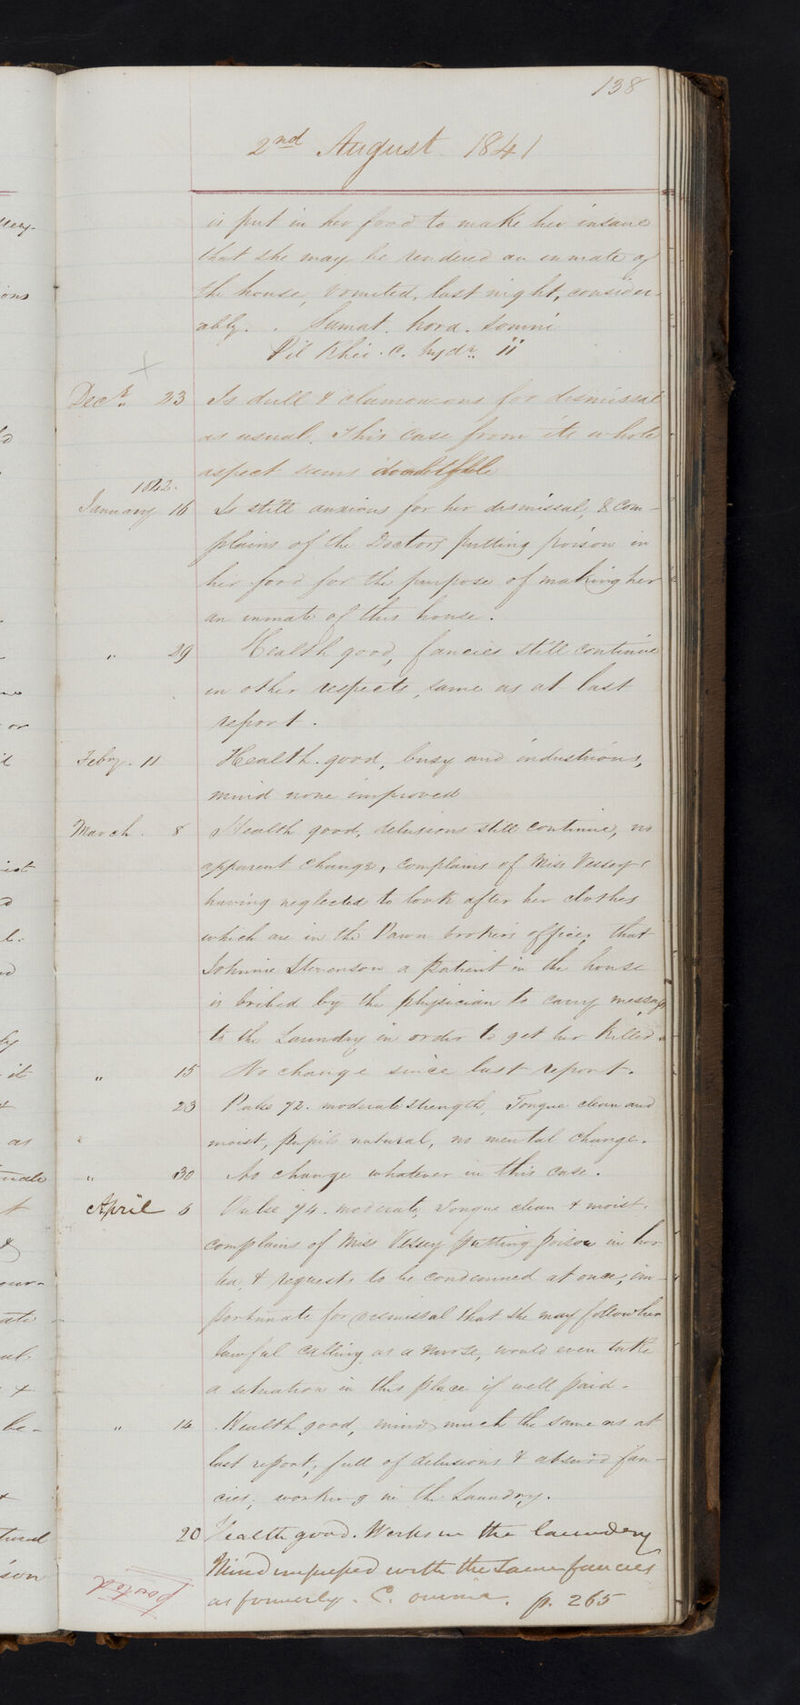 138
2nd August 1841
is put in her food to make her insane
that she may be rendered an inmate of
the house, vomited, last night, consider-
ably. . Sumat. hora. Somni
Pil Rhei. c. hydr. ii
Decr. 23 Is dull & clamourous for dismissal
as usual. This case from its whole
aspect seems doubtfull
1842.
January 16 Is still anxious for her dismissal, & com-
plains of the Doctors putting poison in
her food for the purpose of making her
an inmate of this house.
" 29 Health good, fancies still continue
in other respects, same as at last
report.
Febry. 11 Health good, busy and industrious,
mind none improved
March. 8 Health good, delusions still continue, no
apparent change, complains of Miss Vessey
having neglected to look after her clothes
which are in the Pawn brokers office, that
Johnnie Stevenson a patient in the house
is bribed by the physician to carry messages
to the Laundry in order to get her killed.
" 15 No change since last report.
23 Pulse 72. moderate strength, Tongue clean and
moist, pupils natural, no mental change.
" 30 No change whatever in this case.
April 6 Pulse 74. moderate, Tongue clean & moist.
complains of Miss Vessey putting poison in her
tea, & requests to be condemned at once, im-
portunate for dismissal that she may follow her
lawful calling as a Nurse, would even take
a situation in this place if well paid.
" 14 Health good, mind much the same as at
last report, full of delusions & absurd fan-
cies, working in the Laundry.
20 Health good. Works in the laundry
Mind with the same fancies
as formerly. C. omnia. p. 265
posted